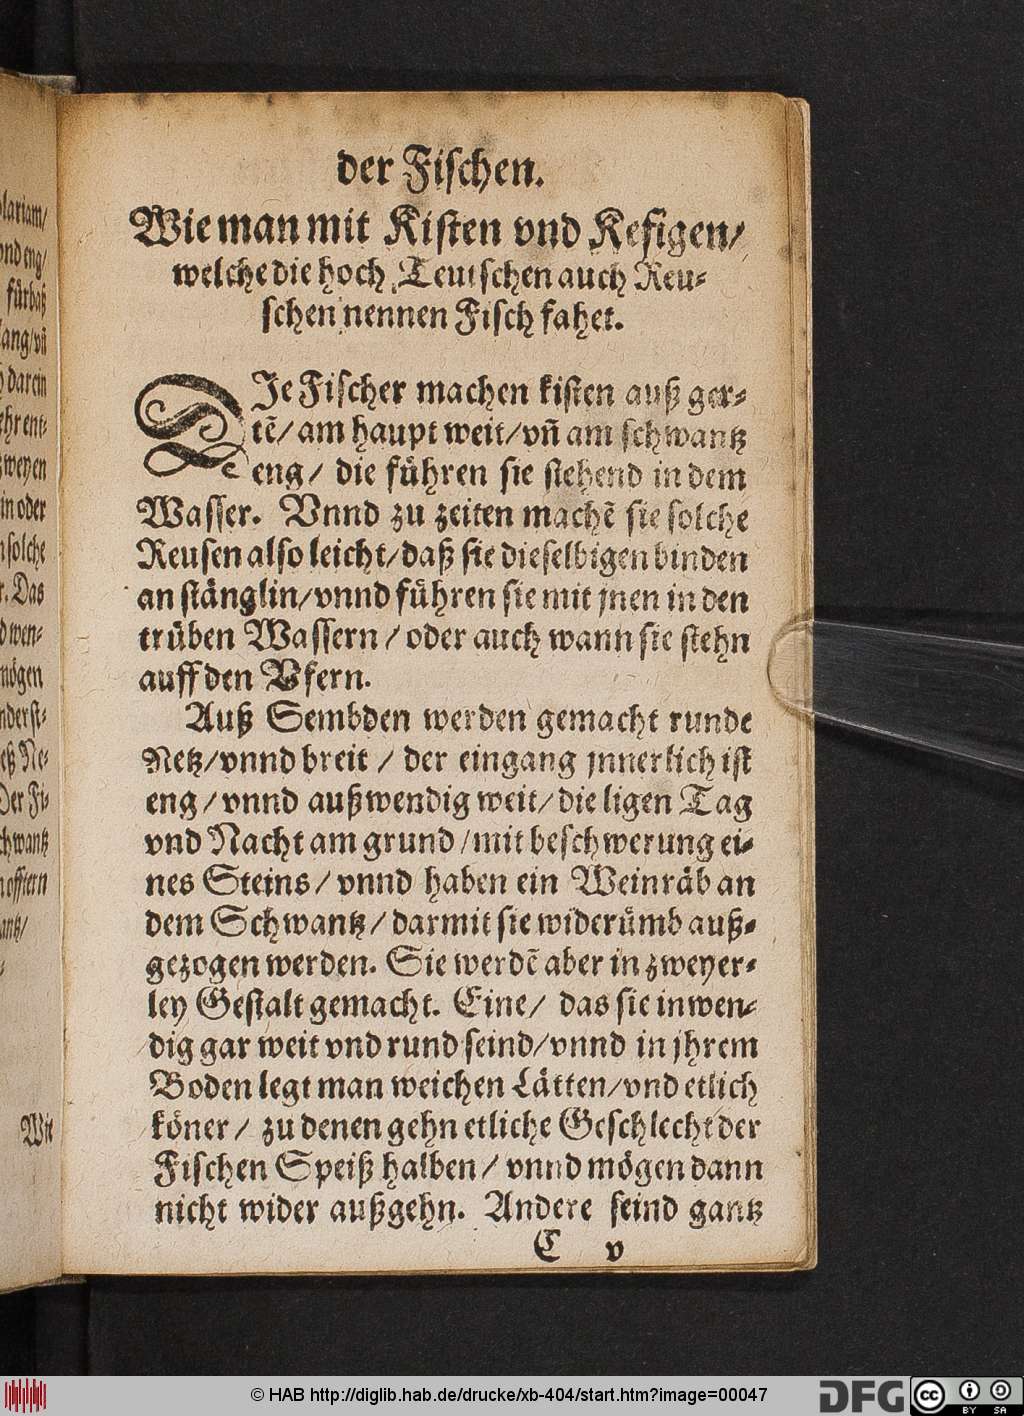 der Fischen.
Wie man mit Kisten vnd Kefigen/
welche die hoch Teutschen auch Reu-
schen nennen Fisch fahet.
DIe Fischer machen kisten auß ger-
tẽ/ am haupt weit/ vñ am schwantz
eng/ die führen sie stehend in dem
Wasser. Vnnd zu zeiten machẽ sie solche
Reusen also leicht/ daß sie dieselbigen binden
an stänglin/ vnnd führen sie mit jnen in den
trüben Wassern/ oder auch wann sie stehn
auff den Vfern.
Auß Sembden werden gemacht runde
Netz/ vnnd breit/ der eingang jnnerlich ist
eng/ vnnd außwendig weit/ die ligen Tag
vnd Nacht am grund/ mit beschwerung ei-
nes Steins/ vnnd haben ein Weinräb an
dem Schwantz/ darmit sie widerümb auß-
gezogen werden. Sie werdẽ aber in zweyer-
ley Gestalt gemacht. Eine/ das sie inwen-
dig gar weit vnd rund seind/ vnnd in jhrem
Boden legt man weichen Lätten/ vnd etlich
köner/ zu denen gehn etliche Geschlecht der
Fischen Speiß halben/ vnnd mögen dann
nicht wider außgehn. Andere seind gantz
C v
vnd eng/
fürbaß
darein
zweyen
in oder
solche
Das
mögen
Der Fi-
Wie
© HAB http://diglib.hab.de/drucke/xb-404/start.htm?image=00047
DFG
cc BY SA